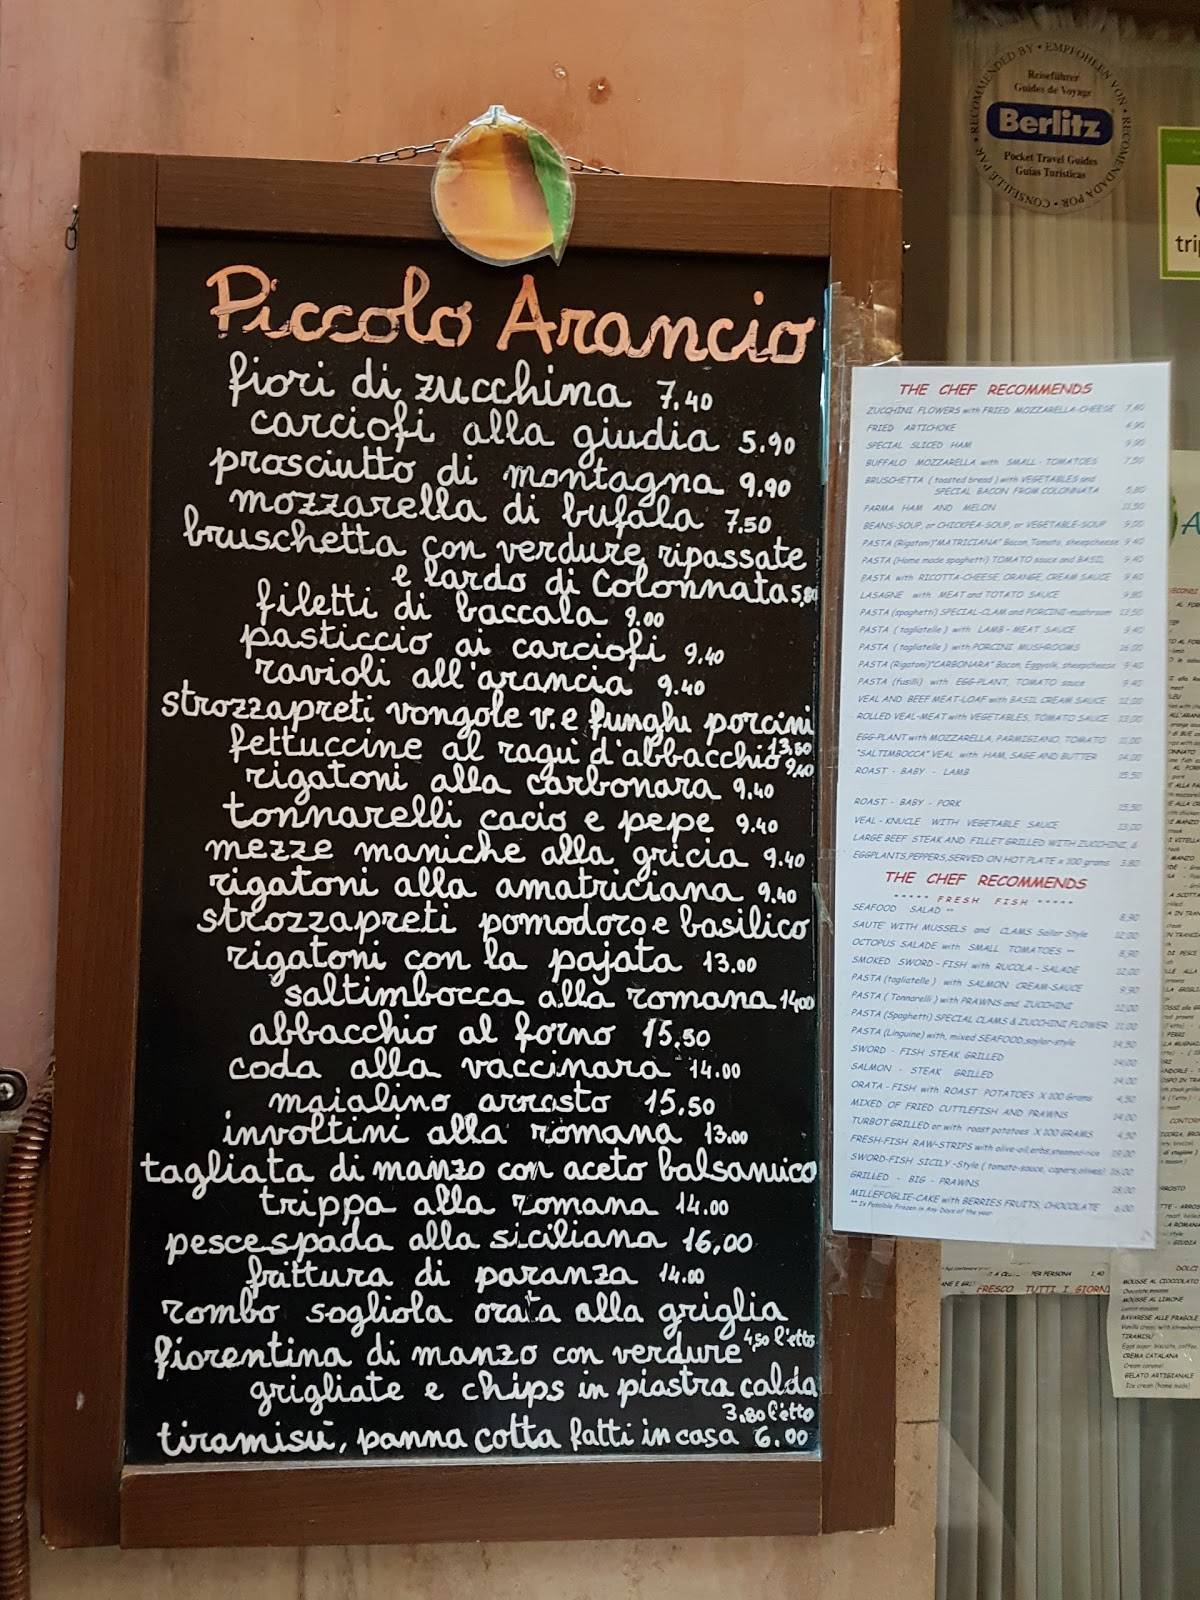 Piccolo Arancio
fiori di zucchina 7.40
carciofi alla giudia 5.90
prosciutto di montagna 9.90
mozzarella di bufala 7.50
bruschetta con verdure ripassate
e lardo di Colonnata 5,80
filetti di baccala 9.00
pasticcio ai carciofi 9.40
ravioli all'arancia 9.40
strozzapreti vongole v. e funghi porcini
13,50
fettuccine al ragù d'abbacchio 9,40
rigatoni alla carbonara 9.40
tonnarelli cacio e pepe 9.40
mezze maniche alla gricia 9.40
rigatoni alla amatriciana 9.40
strozzapreti pomodoro e basilico
rigatoni con la pajata 13.00
saltimbocca alla romana 14,00
abbacchio al forno 15.50
coda alla vaccinara 14.00
maialino arrosto 15.50
involtini alla romana 13.00
tagliata di manzo con aceto balsamico
trippa alla romana 14.00
pescespada alla siciliana 16,00
frittura di paranza 14.00
rombo sogliola orata alla griglia
4,50 l'etto
fiorentina di manzo con verdure
grigliate e chips in piastra calda
3.80 l'etto
tiramisù, panna cotta fatti in casa 6.00
THE CHEF RECOMMENDS
ZUCCHINI FLOWERS with FRIED MOZZARELLA-CHEESE 7,40
FRIED ARTICHOKE
SPECIAL SLICED HAM 9,90
BUFFALO MOZZARELLA with SMALL - TOMATOES 7,50
BRUSCHETTA ( toasted bread ) with VEGETABLES and
SPECIAL BACON FROM COLONNATA 5,80
PARMA HAM AND MELON 11,50
BEANS-SOUP, or CHICKPEA-SOUP, or VEGETABLE-SOUP 9,00
PASTA (Rigatoni)"MATRICIANA" Bacon, Tomato, sheepcheese 9.40
PASTA (Home made spaghetti) TOMATO sauce and BASIL 9,40
PASTA with RICOTTA-CHEESE, ORANGE, CREAM SAUCE 9,40
LASAGNE with MEAT and TOTATO SAUCE 9,80
PASTA (spaghetti) SPECIAL-CLAM and PORCINI-mushroom 13,50
PASTA ( tagliatelle ) with LAMB - MEAT SAUCE 9,40
PASTA ( tagliatelle ) with PORCINI MUSHROOMS 16,00
PASTA (Rigatoni)"CARBONARA" Bacon, Eggyolk, sheepcheese 9,40
PASTA (fusilli) with EGG-PLANT, TOMATO sauce 9,40
VEAL AND BEEF MEAT-LOAF with BASIL CREAM SAUCE 12,00
ROLLED VEAL-MEAT with VEGETABLES, TOMATO SAUCE 13,00
EGG-PLANT with MOZZARELLA, PARMIGIANO, TOMATO 11,00
"SALTIMBOCCA" VEAL with HAM, SAGE AND BUTTER 14,00
ROAST - BABY - LAMB 15,50
ROAST - BABY - PORK 15,50
VEAL - KNUCLE WITH VEGETABLE SAUCE 13,00
LARGE BEEF STEAK AND FILLET GRILLED WITH ZUCCHINI, &
EGGPLANTS, PEPPERS, SERVED ON HOT PLATE x 100 grams 3,80
THE CHEF RECOMMENDS
***** FRESH FISH *****
SEAFOOD SALAD ** 8,90
SAUTE WITH MUSSELS and CLAMS Sailor Style 12,00
OCTOPUS SALADE with SMALL TOMATOES ** 8,90
SMOKED SWORD - FISH with RUCOLA - SALADE 12,00
PASTA (tagliatelle) with SALMON CREAM-SAUCE 9,90
PASTA ( Tonnarelli ) with PRAWNS and ZUCCHINI 12,00
PASTA (Spaghetti) SPECIAL CLAMS & ZUCCHINI FLOWER 11,00
PASTA (Linguine) with, mixed SEAFOOD, saylor-style 14,50
SWORD - FISH STEAK GRILLED 14,00
SALMON - STEAK GRILLED 14,00
ORATA - FISH with ROAST POTATOES X 100 Grams 4,50
MIXED OF FRIED CUTTLEFISH AND PRAWNS 14,00
TURBOT GRILLED or with roast potatoes X 100 GRAMS 4,50
FRESH-FISH RAW-STRIPS with olive-oil, erbs, steamed-rice 19,00
SWORD-FISH SICILY -Style ( tomato-sauce, capers, olives) 16,00
GRILLED - BIG - PRAWNS 18,00
MILLEFOGLIE-CAKE with BERRIES FRUITS, CHOCOLATE 6,00
** Is Possible Frozen in Any Days of the year
RECOMMENDED BY • EMPFOHLEN VON • RECOMENDADA POR • CONSEILLE PAR •
Reiseführer
Guides de Voyage
Berlitz
Pocket Travel Guides
Guías Turísticas
PER PERSONA 1,40
FRESCO TUTTI I GIORNI
DOLCI
MOUSSE AL CIOCCOLATO
Chocolate mousse
MOUSSE AL LIMONE
Lemon mousse
BAVARESE ALLE FRAGOLE
TIRAMISU'
CREMA CATALANA
Cream caramel
GELATO ARTIGIANALE
Ice cream (home made)